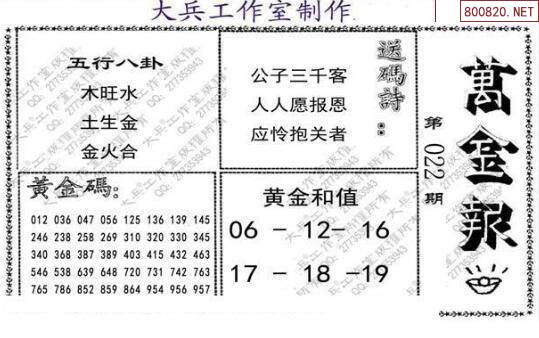 大兵工作室制作
800820.NET
五行八卦
木旺水
土生金
金火合
送碼詩：
公子三千客
人人愿报恩
应怜抱关者
萬金報
第022期
黃金碼：
012 036 047 056 125 136 139 145
246 238 258 269 310 320 330 345
340 368 387 389 403 415 432 463
546 538 639 648 720 731 742 763
765 786 852 859 864 954 956 957
黄金和值
06 - 12- 16
17 - 18 -19